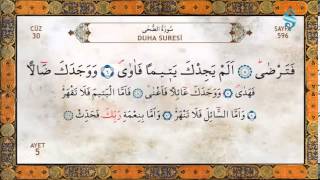 CÜZ
30
سُورَةُ الضُّحٰى
DUHA SURESİ
SAYFA
596
فَتَرْضٰىۜ ﴿٥﴾ اَلَمْ يَجِدْكَ يَت۪يمًا فَاٰوٰىۖ ﴿٦﴾ وَوَجَدَكَ ضَٓالًّا
فَهَدٰىۖ ﴿٧﴾ وَوَجَدَكَ عَٓائِلًا فَاَغْنٰىۜ ﴿٨﴾ فَاَمَّا الْيَت۪يمَ فَلَا تَقْهَرْۜ
﴿٩﴾ وَاَمَّا السَّٓائِلَ فَلَا تَنْهَرْۜ ﴿١٠﴾ وَاَمَّا بِنِعْمَةِ رَبِّكَ فَحَدِّثْ ﴿١١﴾
AYET
5